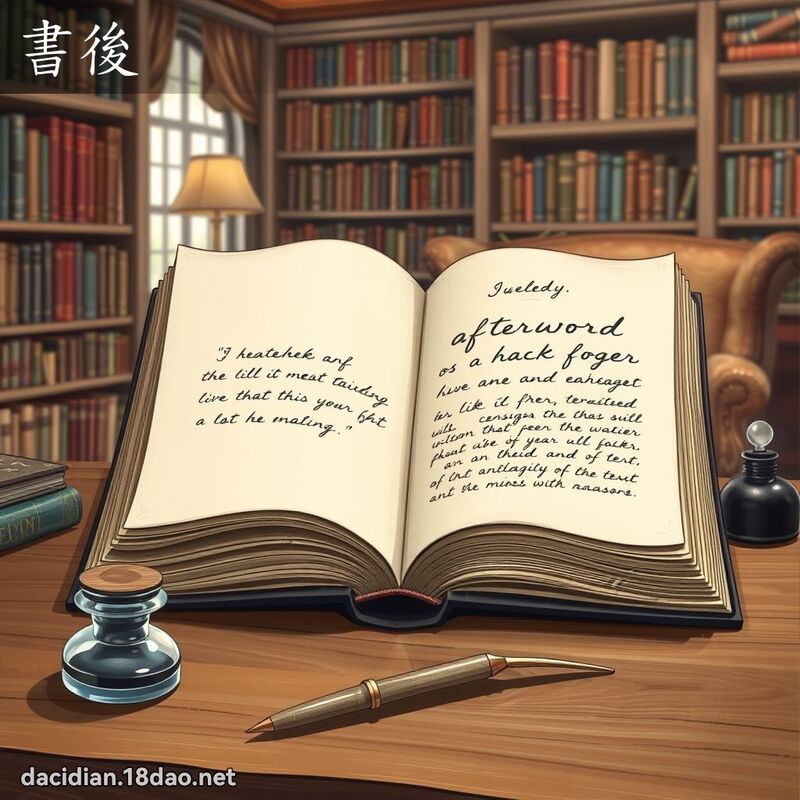 書後
"I heatehek anf
the lill it meat taiding
live that this your
a lot he maling."
Jueledy.
afterword
os a hack foger
have ane and eaheaget
ber like il fher, teraiteed
wills censigs the thas suill
that feer the walier
phoat abe of year ull falkr.
an an theid and of tert,
of and anllagily of the teut
ant the mices with naasore.
dacidian.18dao.net